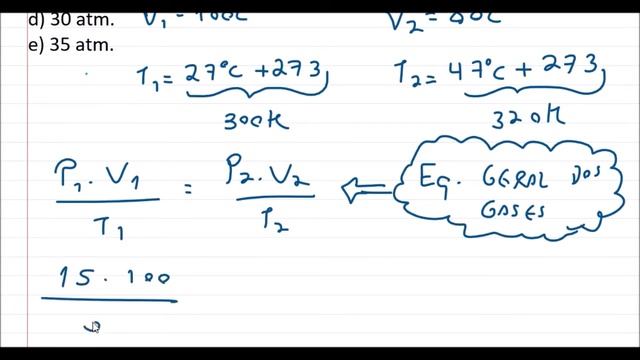 d) 30 atm.
e) 35 atm.
T₁ = 27°C + 273
300K
T₂ = 47°C + 273
320K
P₁ . V₁ / T₁ = P₂ . V₂ / T₂
Eq. GERAL DOS
GASES
15 . 100